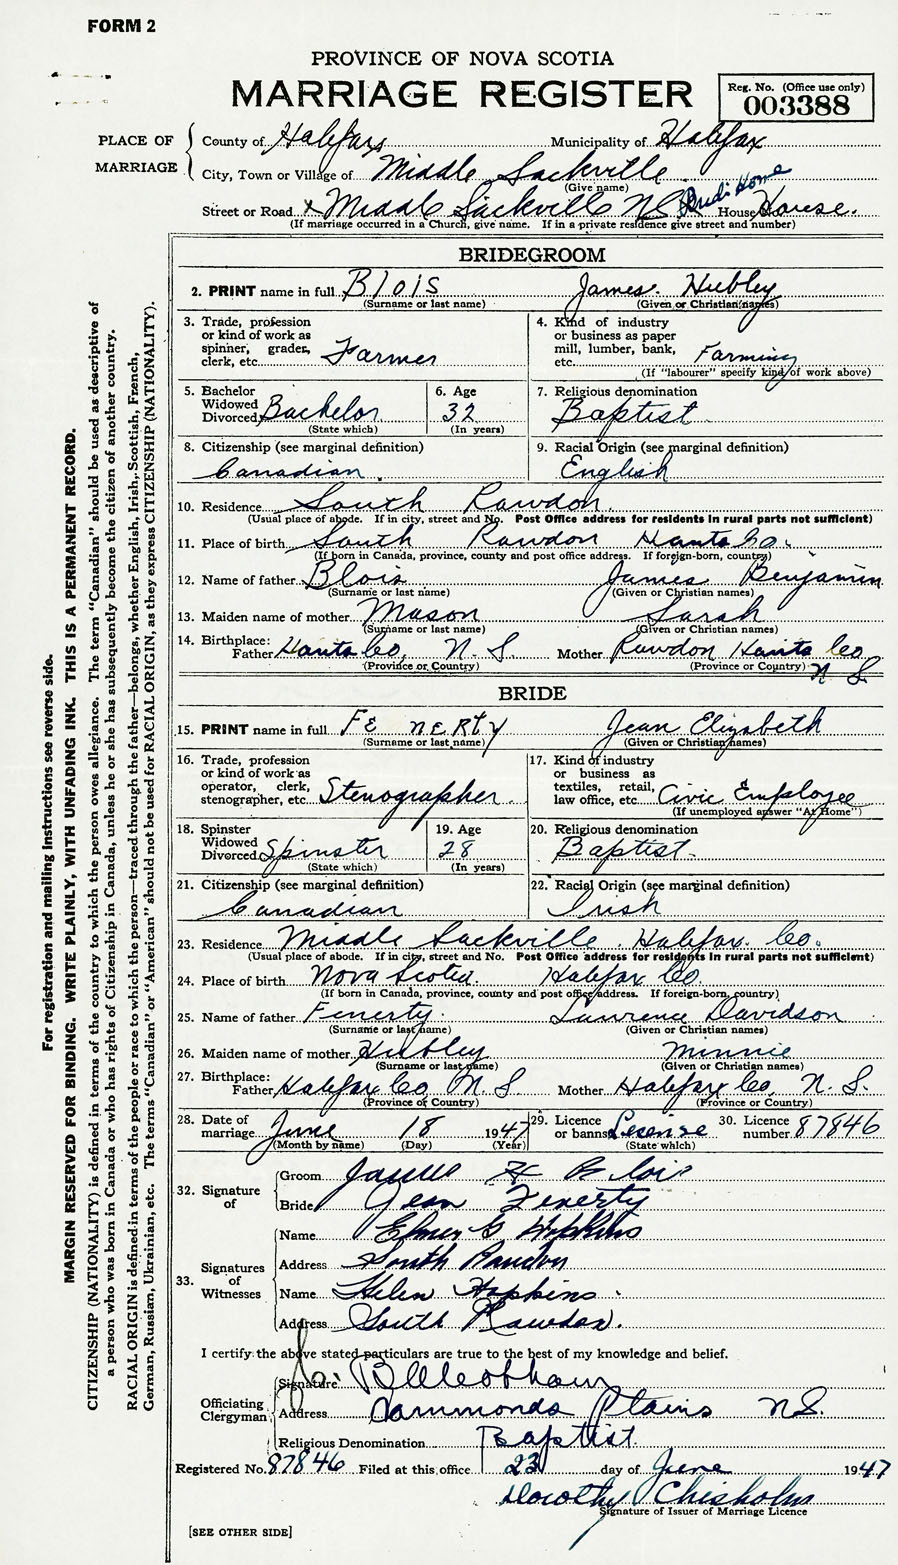 FORM 2
PROVINCE OF NOVA SCOTIA
MARRIAGE REGISTER
Reg. No. (Office use only)
003388
PLACE OF MARRIAGE
County of Halifax Municipality of Halifax
City, Town or Village of Middle Sackville
(Give name)
Street or Road x Middle Sackville NS Home House House.
(If marriage occurred in a Church, give name. If in a private residence give street and number)
BRIDEGROOM
2. PRINT name in full Blois James Hubley
(Surname or last name) (Given or Christian names)
3. Trade, profession or kind of work as spinner, grader, clerk, etc. Farmer
4. Kind of industry or business as paper mill, lumber, bank, etc. Farming
(If "labourer" specify kind of work above)
5. Bachelor Widowed Divorced Bachelor
(State which)
6. Age 32
(In years)
7. Religious denomination Baptist
8. Citizenship (see marginal definition) Canadian
9. Racial Origin (see marginal definition) English
10. Residence South Rawdon
(Usual place of abode. If in city, street and No. Post Office address for residents in rural parts not sufficient)
11. Place of birth South Rawdon Hants Co.
(If born in Canada, province, county and post office address. If foreign-born, country)
12. Name of father Blois James Benjamin
(Surname or last name) (Given or Christian names)
13. Maiden name of mother Mason Sarah
(Surname or last name) (Given or Christian names)
14. Birthplace: Father Hants Co, N. S. Mother Rawdon Hants Co N S.
(Province or Country) (Province or Country)
BRIDE
15. PRINT name in full FENERTY Jean Elizabeth
(Surname or last name) (Given or Christian names)
16. Trade, profession or kind of work as operator, clerk, stenographer, etc. Stenographer
17. Kind of industry or business as textiles, retail, law office, etc. Civic Employee
(If unemployed answer "At Home")
18. Spinster Widowed Divorced Spinster
(State which)
19. Age 28
(In years)
20. Religious denomination Baptist
21. Citizenship (see marginal definition) Canadian
22. Racial Origin (see marginal definition) Irish
23. Residence Middle Sackville. Halifax. Co.
(Usual place of abode. If in city, street and No. Post Office address for residents in rural parts not sufficient)
24. Place of birth Nova Scotia. Halifax Co.
(If born in Canada, province, county and post office address. If foreign-born, country)
25. Name of father Fenerty. Lawrence Davidson
(Surname or last name) (Given or Christian names)
26. Maiden name of mother Hubley Minnie
(Surname or last name) (Given or Christian names)
27. Birthplace: Father Halifax Co, N. S Mother Halifax Co, N. S.
(Province or Country) (Province or Country)
28. Date of marriage June 18 1947
(Month by name) (Day) (Year)
29. Licence or banns License
(State which)
30. Licence number 87846
32. Signature of
Groom James H Blois
Bride Jean Fenerty
33. Signatures of Witnesses
Name Elmer G Hopkins
Address South Rawdon
Name Helen Hopkins
Address South Rawdon.
I certify the above stated particulars are true to the best of my knowledge and belief.
Officiating Clergyman
Signature
Address Hammonds Plains N.S.
Religious Denomination Baptist.
Registered No. 87846 Filed at this office 23 day of June 1947
Dorothy Chisholm
Signature of Issuer of Marriage Licence
[SEE OTHER SIDE]
For registration and mailing instructions see reverse side.
MARGIN RESERVED FOR BINDING. WRITE PLAINLY, WITH UNFADING INK. THIS IS A PERMANENT RECORD.
CITIZENSHIP (NATIONALITY) is defined in terms of the country to which the person owes allegiance. The term "Canadian" should be used as descriptive of
a person who was born in Canada or who has rights of Citizenship in Canada, unless he or she has subsequently become the citizen of another country.
RACIAL ORIGIN is defined in terms of the people or race to which the person—traced through the father—belongs, whether English, Irish, Scottish, French,
German, Russian, Ukrainian, etc. The terms "Canadian" or "American" should not be used for RACIAL ORIGIN, as they express CITIZENSHIP (NATIONALITY).